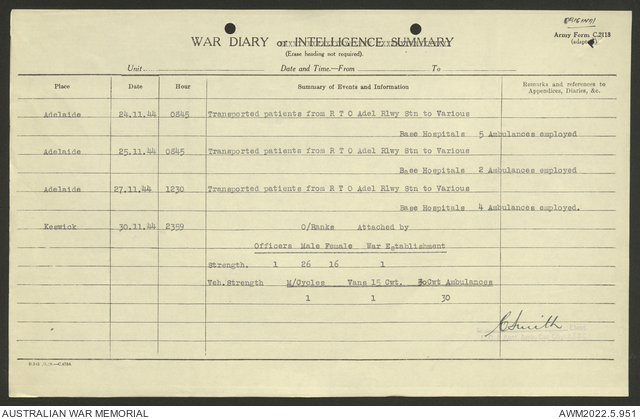 ORIGINAL
Army Form C.2118
(adapted)
WAR DIARY or INTELLIGENCE SUMMARY
(Erase heading not required).
Unit Date and Time.—From To
Place Date Hour Summary of Events and Information Remarks and references to Appendices, Diaries, &c.
Adelaide 24.11.44 0845 Transported patients from R T O Adel Rlwy Stn to Various
Base Hospitals 5 Ambulances employed
Adelaide 25.11.44 0845 Transported patients from R T O Adel Rlwy Stn to Various
Base Hospitals 2 Ambulances employed
Adelaide 27.11.44 1230 Transported patients from R T O Adel Rlwy Stn to Various
Base Hospitals 4 Ambulances employed.
Keswick 30.11.44 2359 O/Ranke Attached by
Officers Male Female War Egtablishment
Strength. 1 26 16 1
Veh.Strength M/Cycles Vans 15 Cwt. 30Cwt Ambulances
1 1 30
CSmith
AUSTRALIAN WAR MEMORIAL AWM2022.5.951